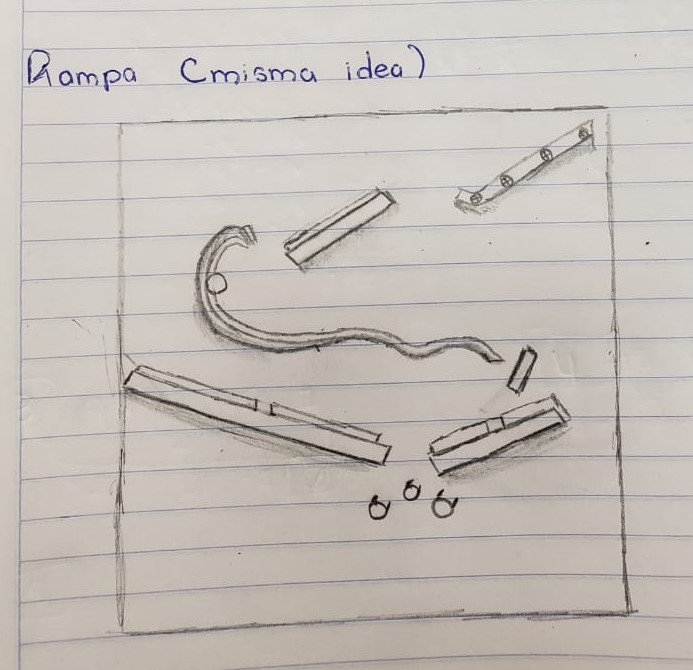 Rampa (misma idea)